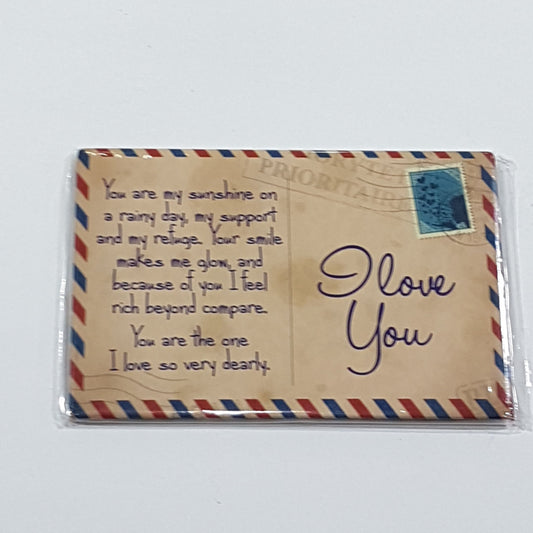 PRIORITAIRE
You are my sunshine on
a rainy day, my support
and my refuge. Your smile
makes me glow, and
because of you I feel
rich beyond compare.
You are the one
I love so very dearly.
I love
You